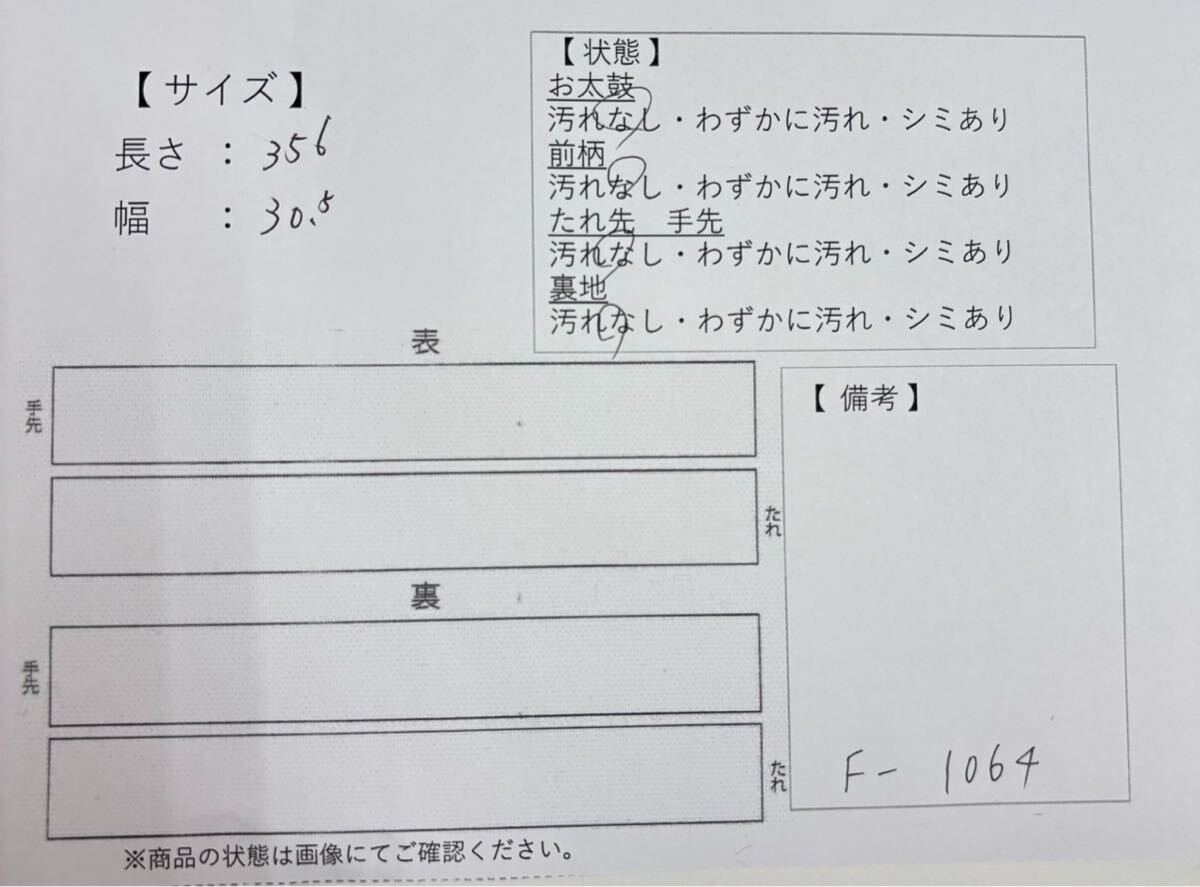 【 サイズ 】
長さ ： 356
幅 ： 30.5
【 状態 】
お太鼓
汚れなし・わずかに汚れ・シミあり
前柄
汚れなし・わずかに汚れ・シミあり
たれ先　手先
汚れなし・わずかに汚れ・シミあり
裏地
汚れなし・わずかに汚れ・シミあり
表
手先
たれ
裏
手先
たれ
【 備考 】
F- 1064
※商品の状態は画像にてご確認ください。